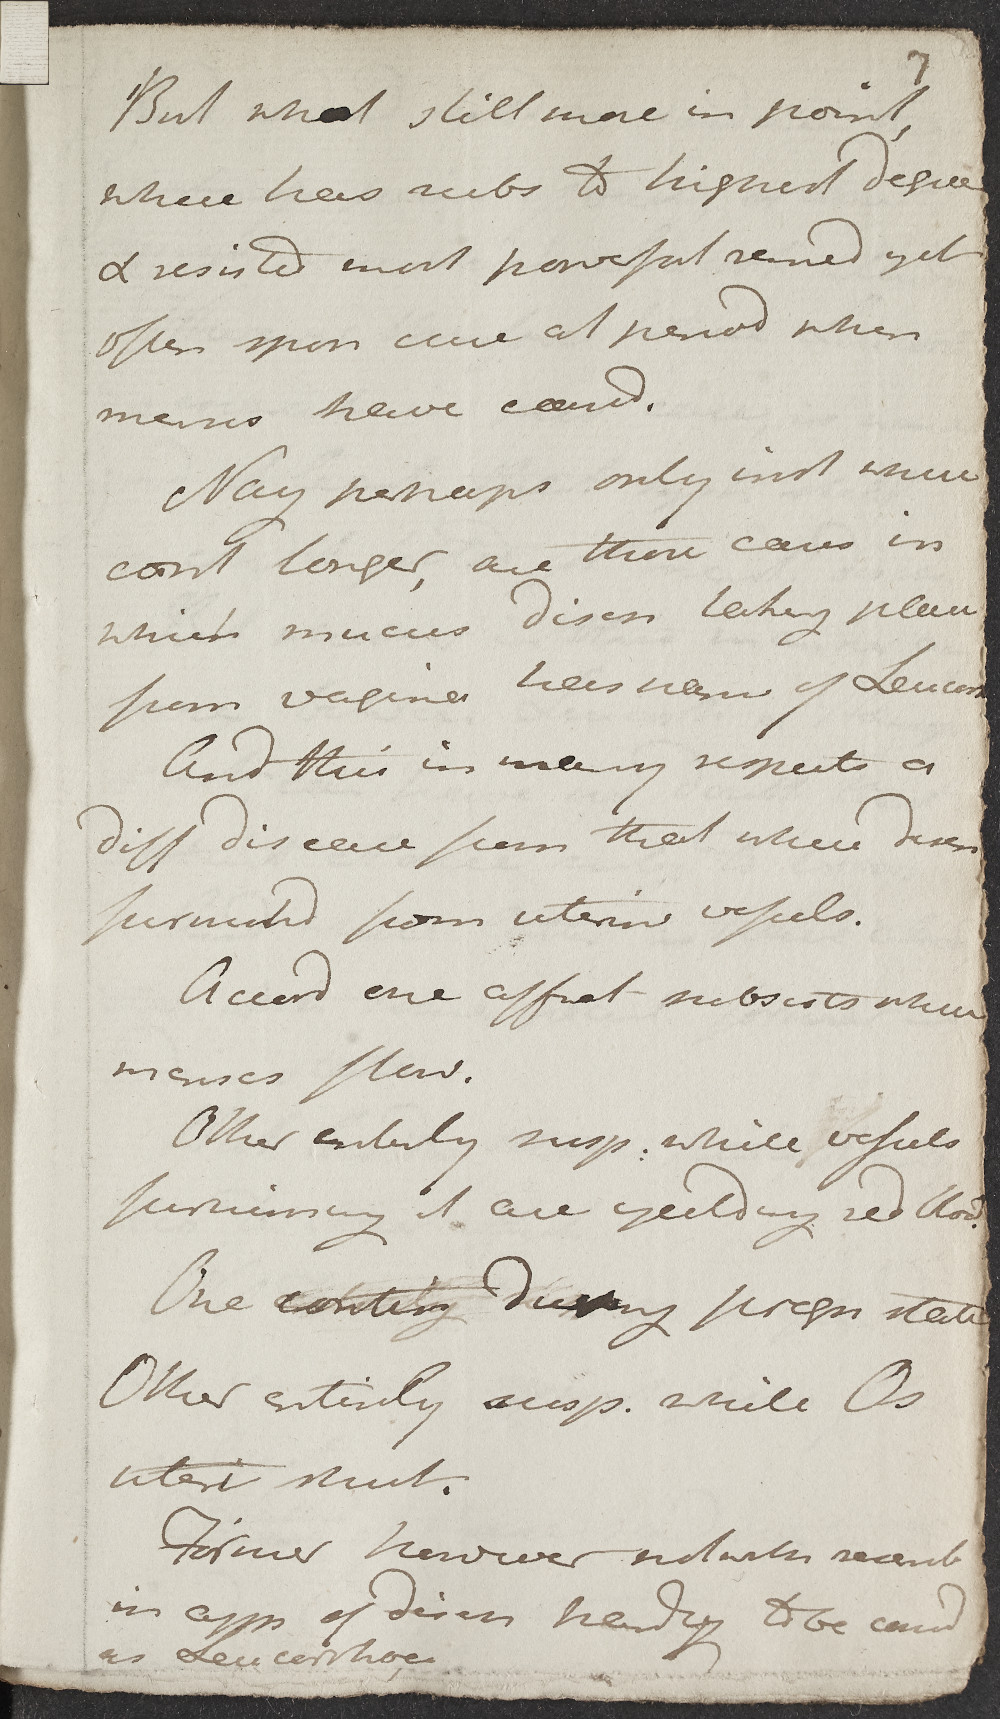 7
But what still more in point,
where has subs to highest degree
& resisted most powerful remed yet
often spon cure at period when
menses have ceased.
Nay perhaps only inst where
cont longer, are those cases in
which mucus disch taking place
from vagina has name of Leucorr
And this in many respects a
diff disease from that where disch
furnished from uterine vessels.
Accord one affect subsists when
menses flow.
Other entirely susp. while vessels
furnishing it are yielding red blood.
One conting during pregn state
Other entirely susp. while Os
uteri shut.
Former however notwith resemb
in app of disch hardly to be cons
as Leucorrhoea